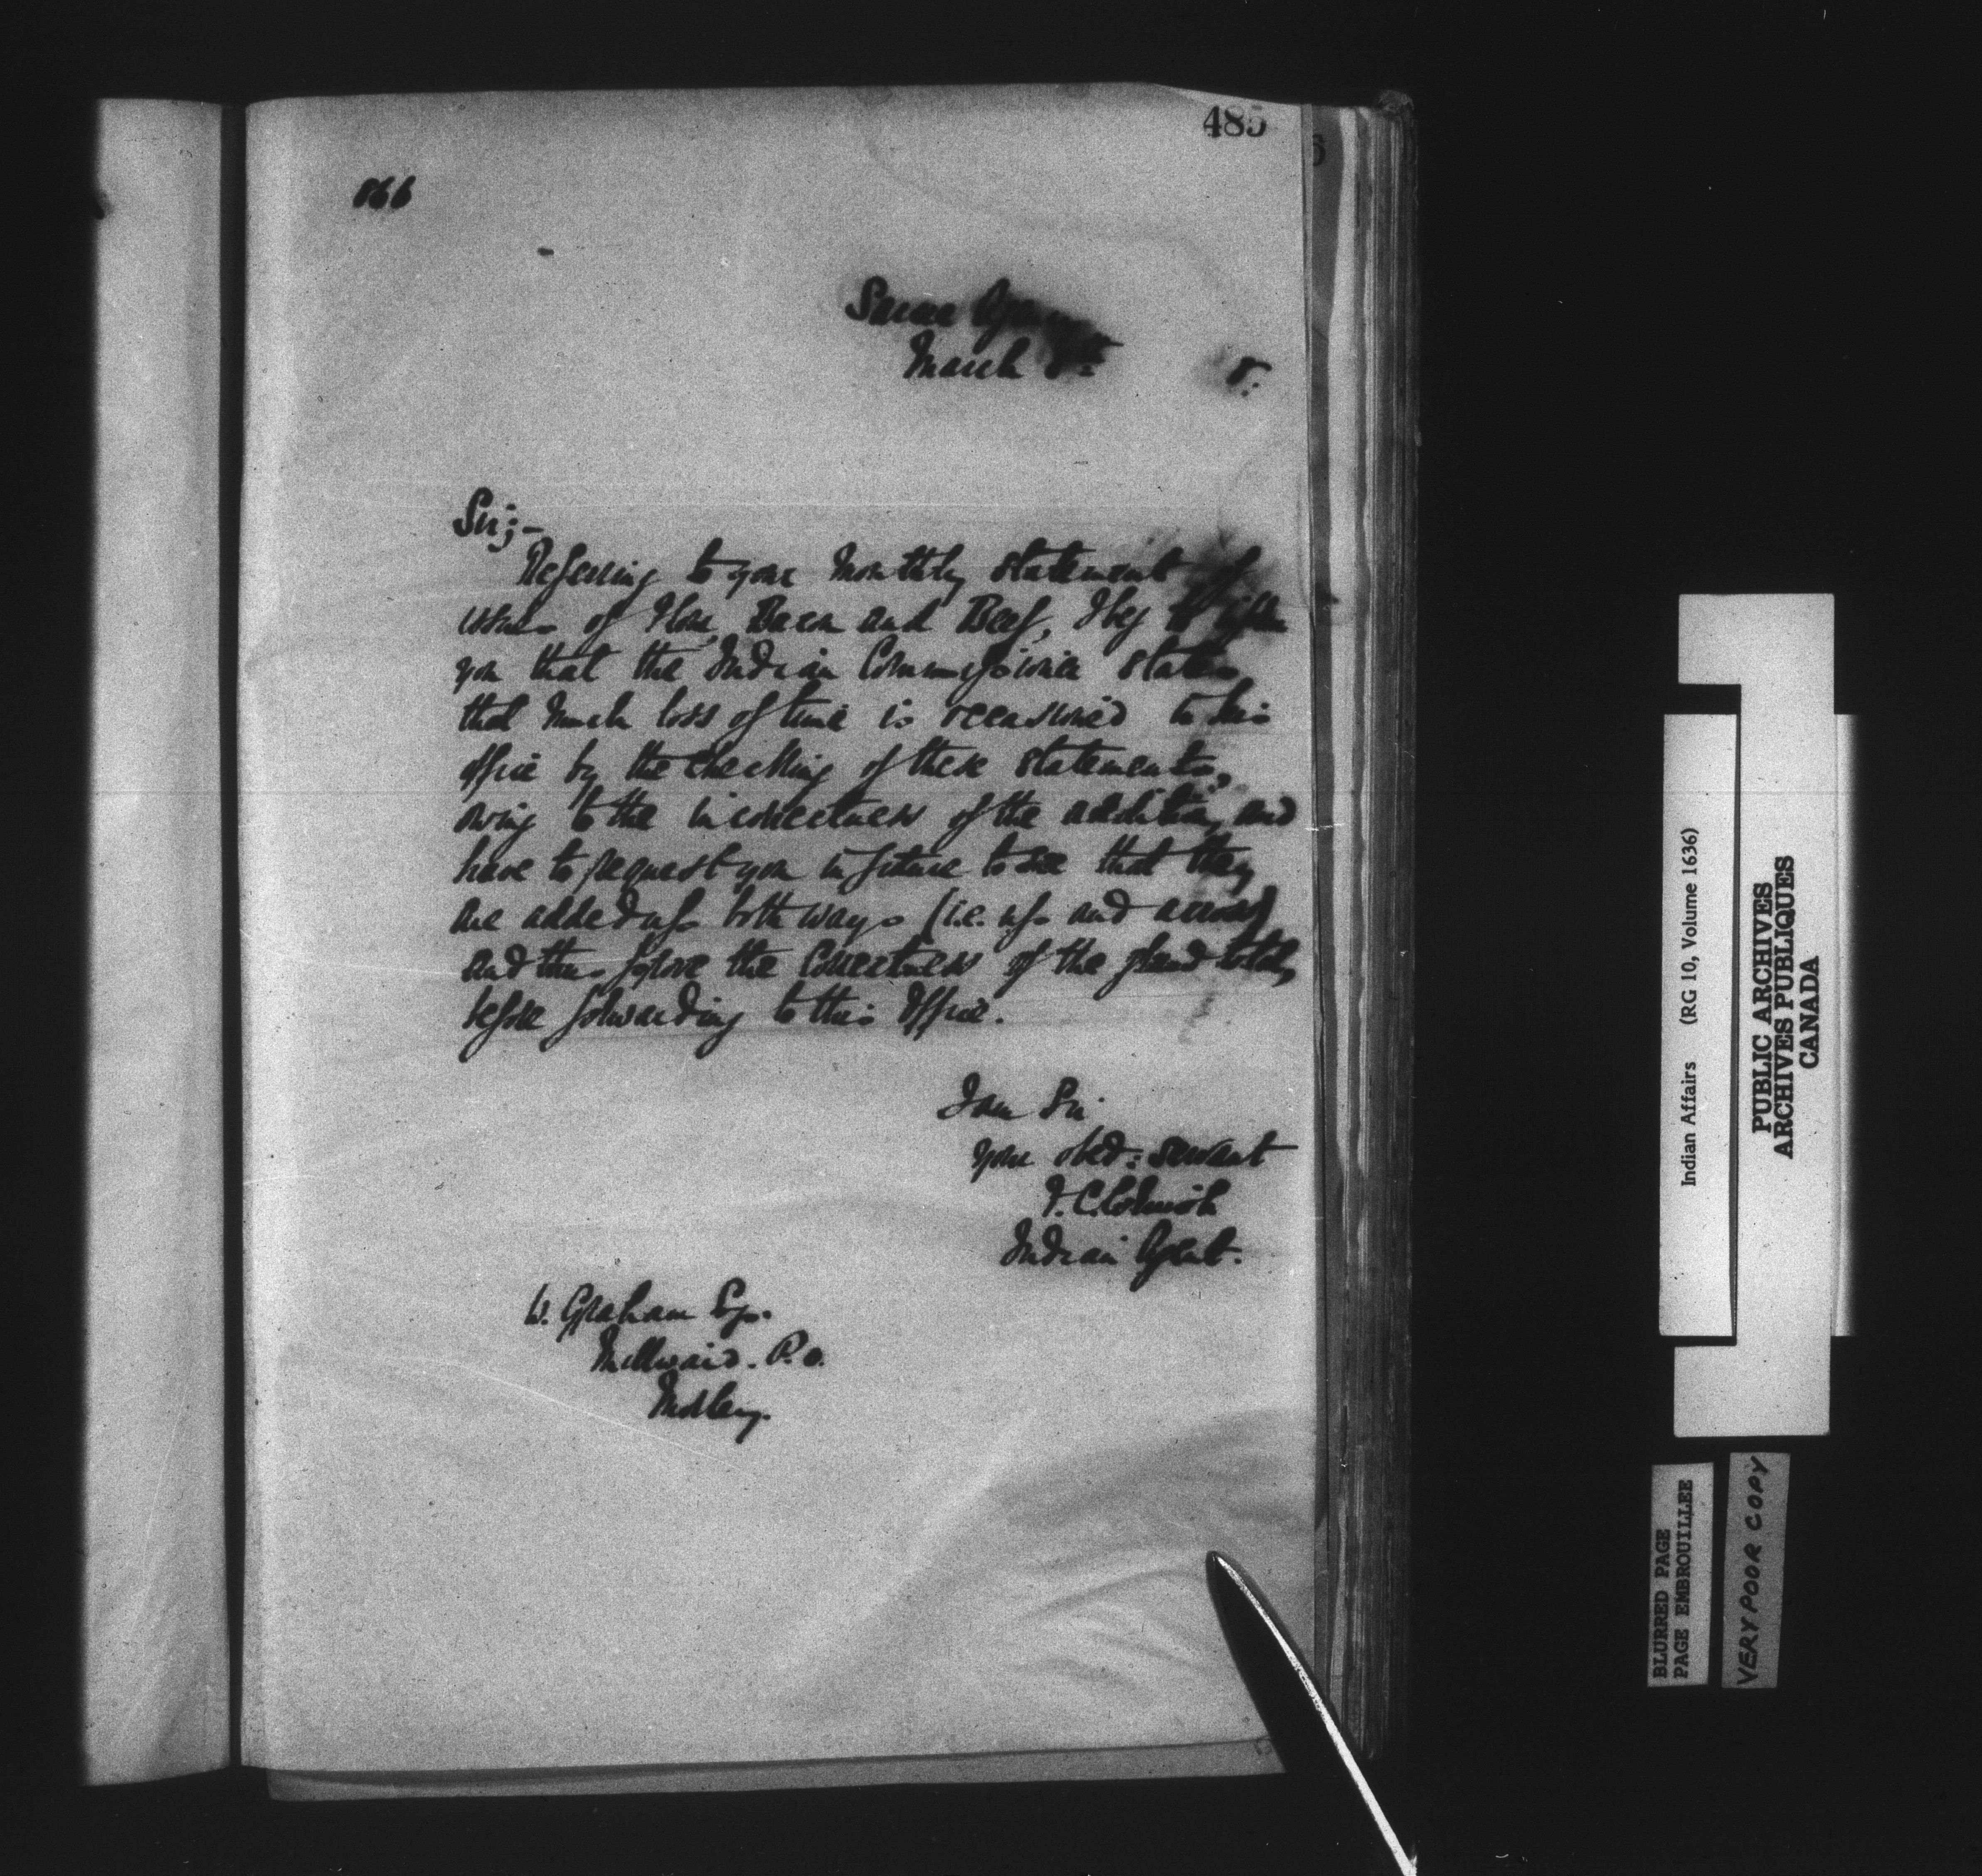 485
866
Sarcee Agency
March 8th 8.
Sir;-
Referring to your Monthly Statement of
issues of Flour, Bacon and Beef, I beg to inform
you that the Indian Commissioner states
that much loss of time is occasioned to his
office by the checking of these statements,
owing to the incorrectness of the addition, and
have to request you in future to see that they
are added up both ways (i.e. up and across)
and thus prove the correctness of the grand totals,
before forwarding to this Office.
I am Sir
your obed: servant
F. C. Cornish
Indian Agent.
W. Graham Esq.
Millward. P.O.
Morley.
Indian Affairs (RG 10, Volume 1636)
PUBLIC ARCHIVES
ARCHIVES PUBLIQUES
CANADA
BLURRED PAGE
PAGE EMBROUILLEE
VERY POOR COPY